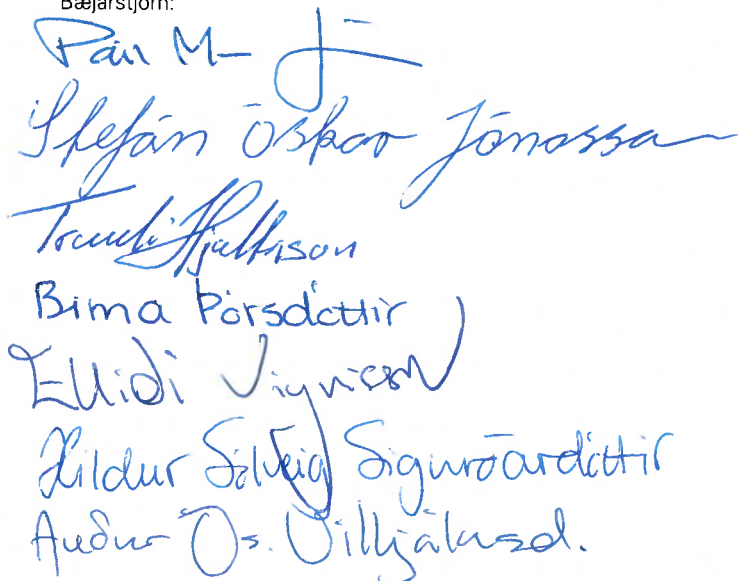 Bæjarstjórn:
Páll M
Stefán Óskar Jónasson
Trausti Hjaltason
Birna Þórsdóttir
Elliði Vignisson
Hildur Sólveig Sigurðardóttir
Auður Ós. Vilhjálmsd.